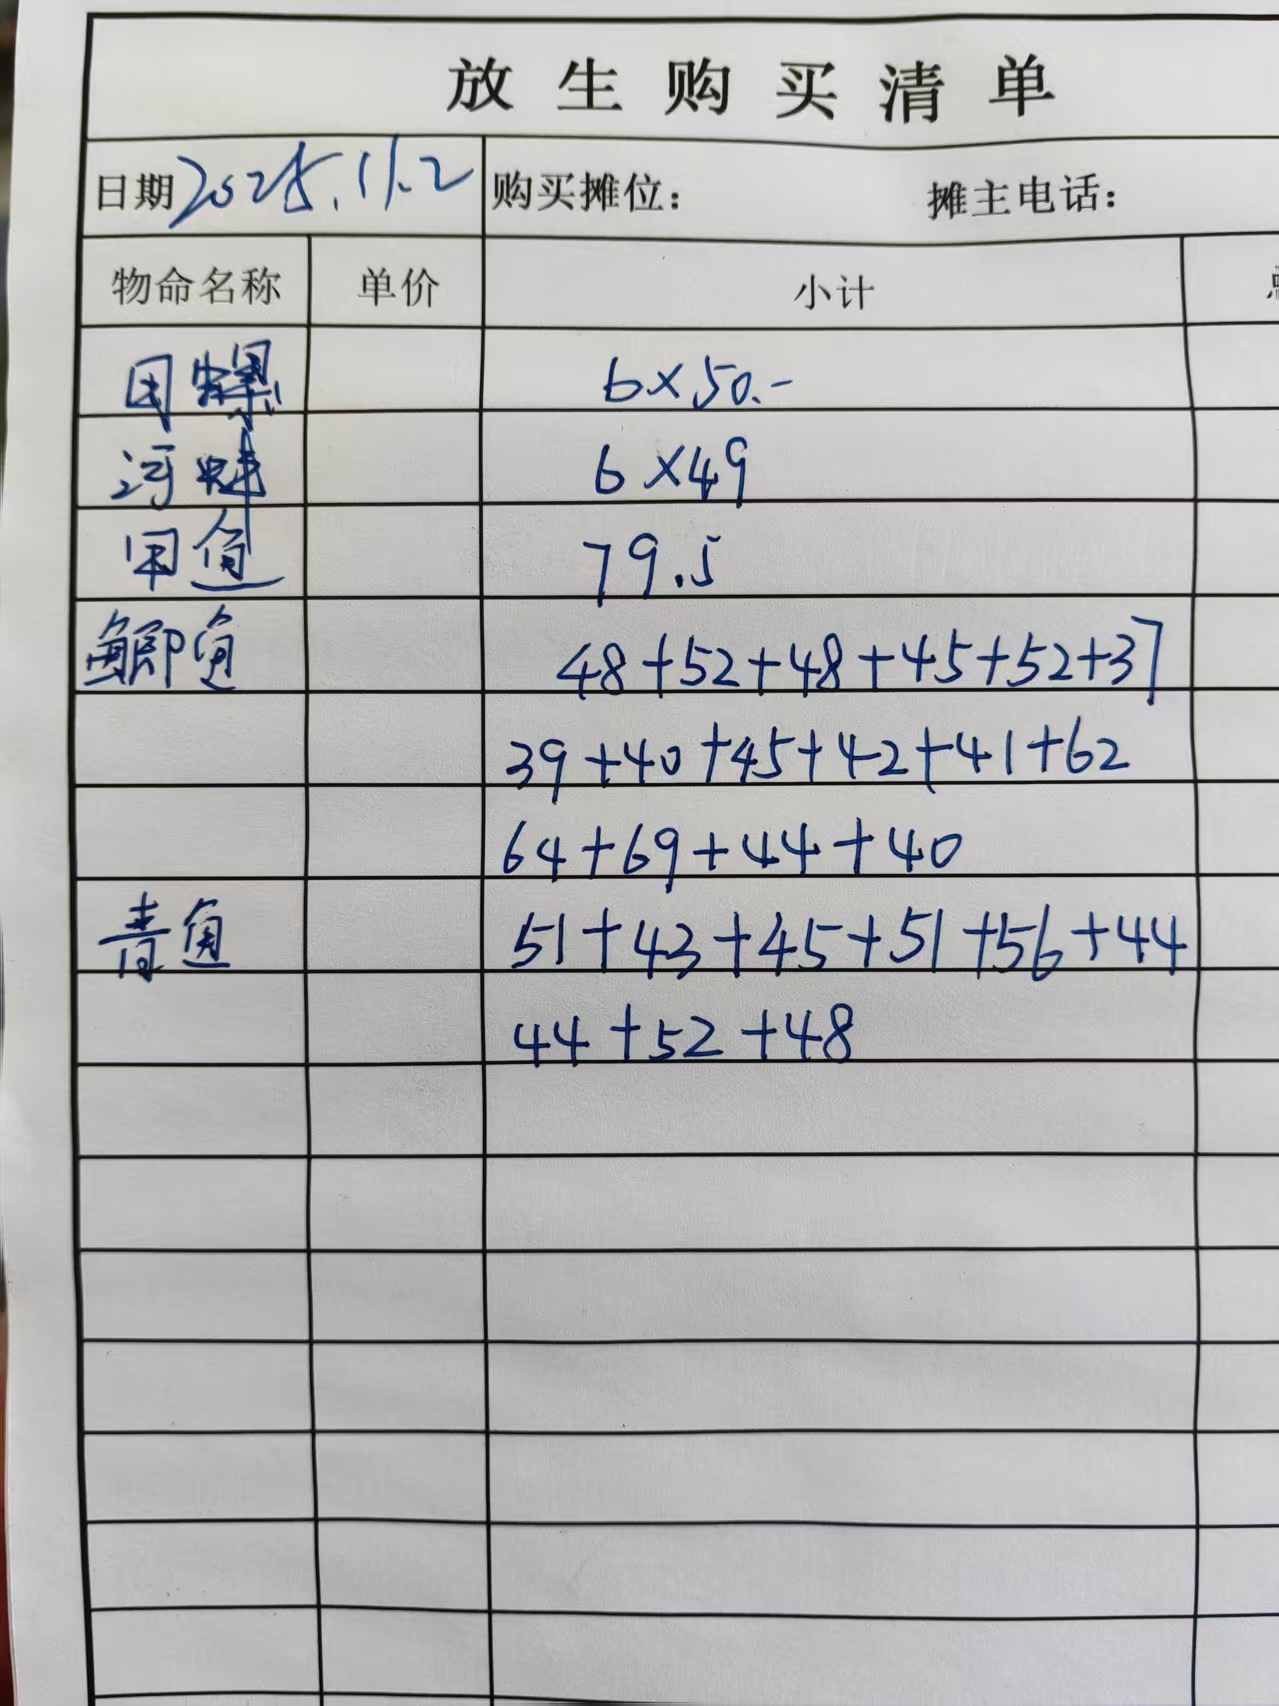 放生购买清单
日期 2025.11.2 购买摊位： 摊主电话：
物命名称 单价 小计
田螺 6×50.-
河蚌 6×49
甲鱼 79.5
鲫鱼 48+52+48+45+52+37
39+40+45+42+41+62
64+69+44+40
青鱼 51+43+45+51+56+44
44+52+48